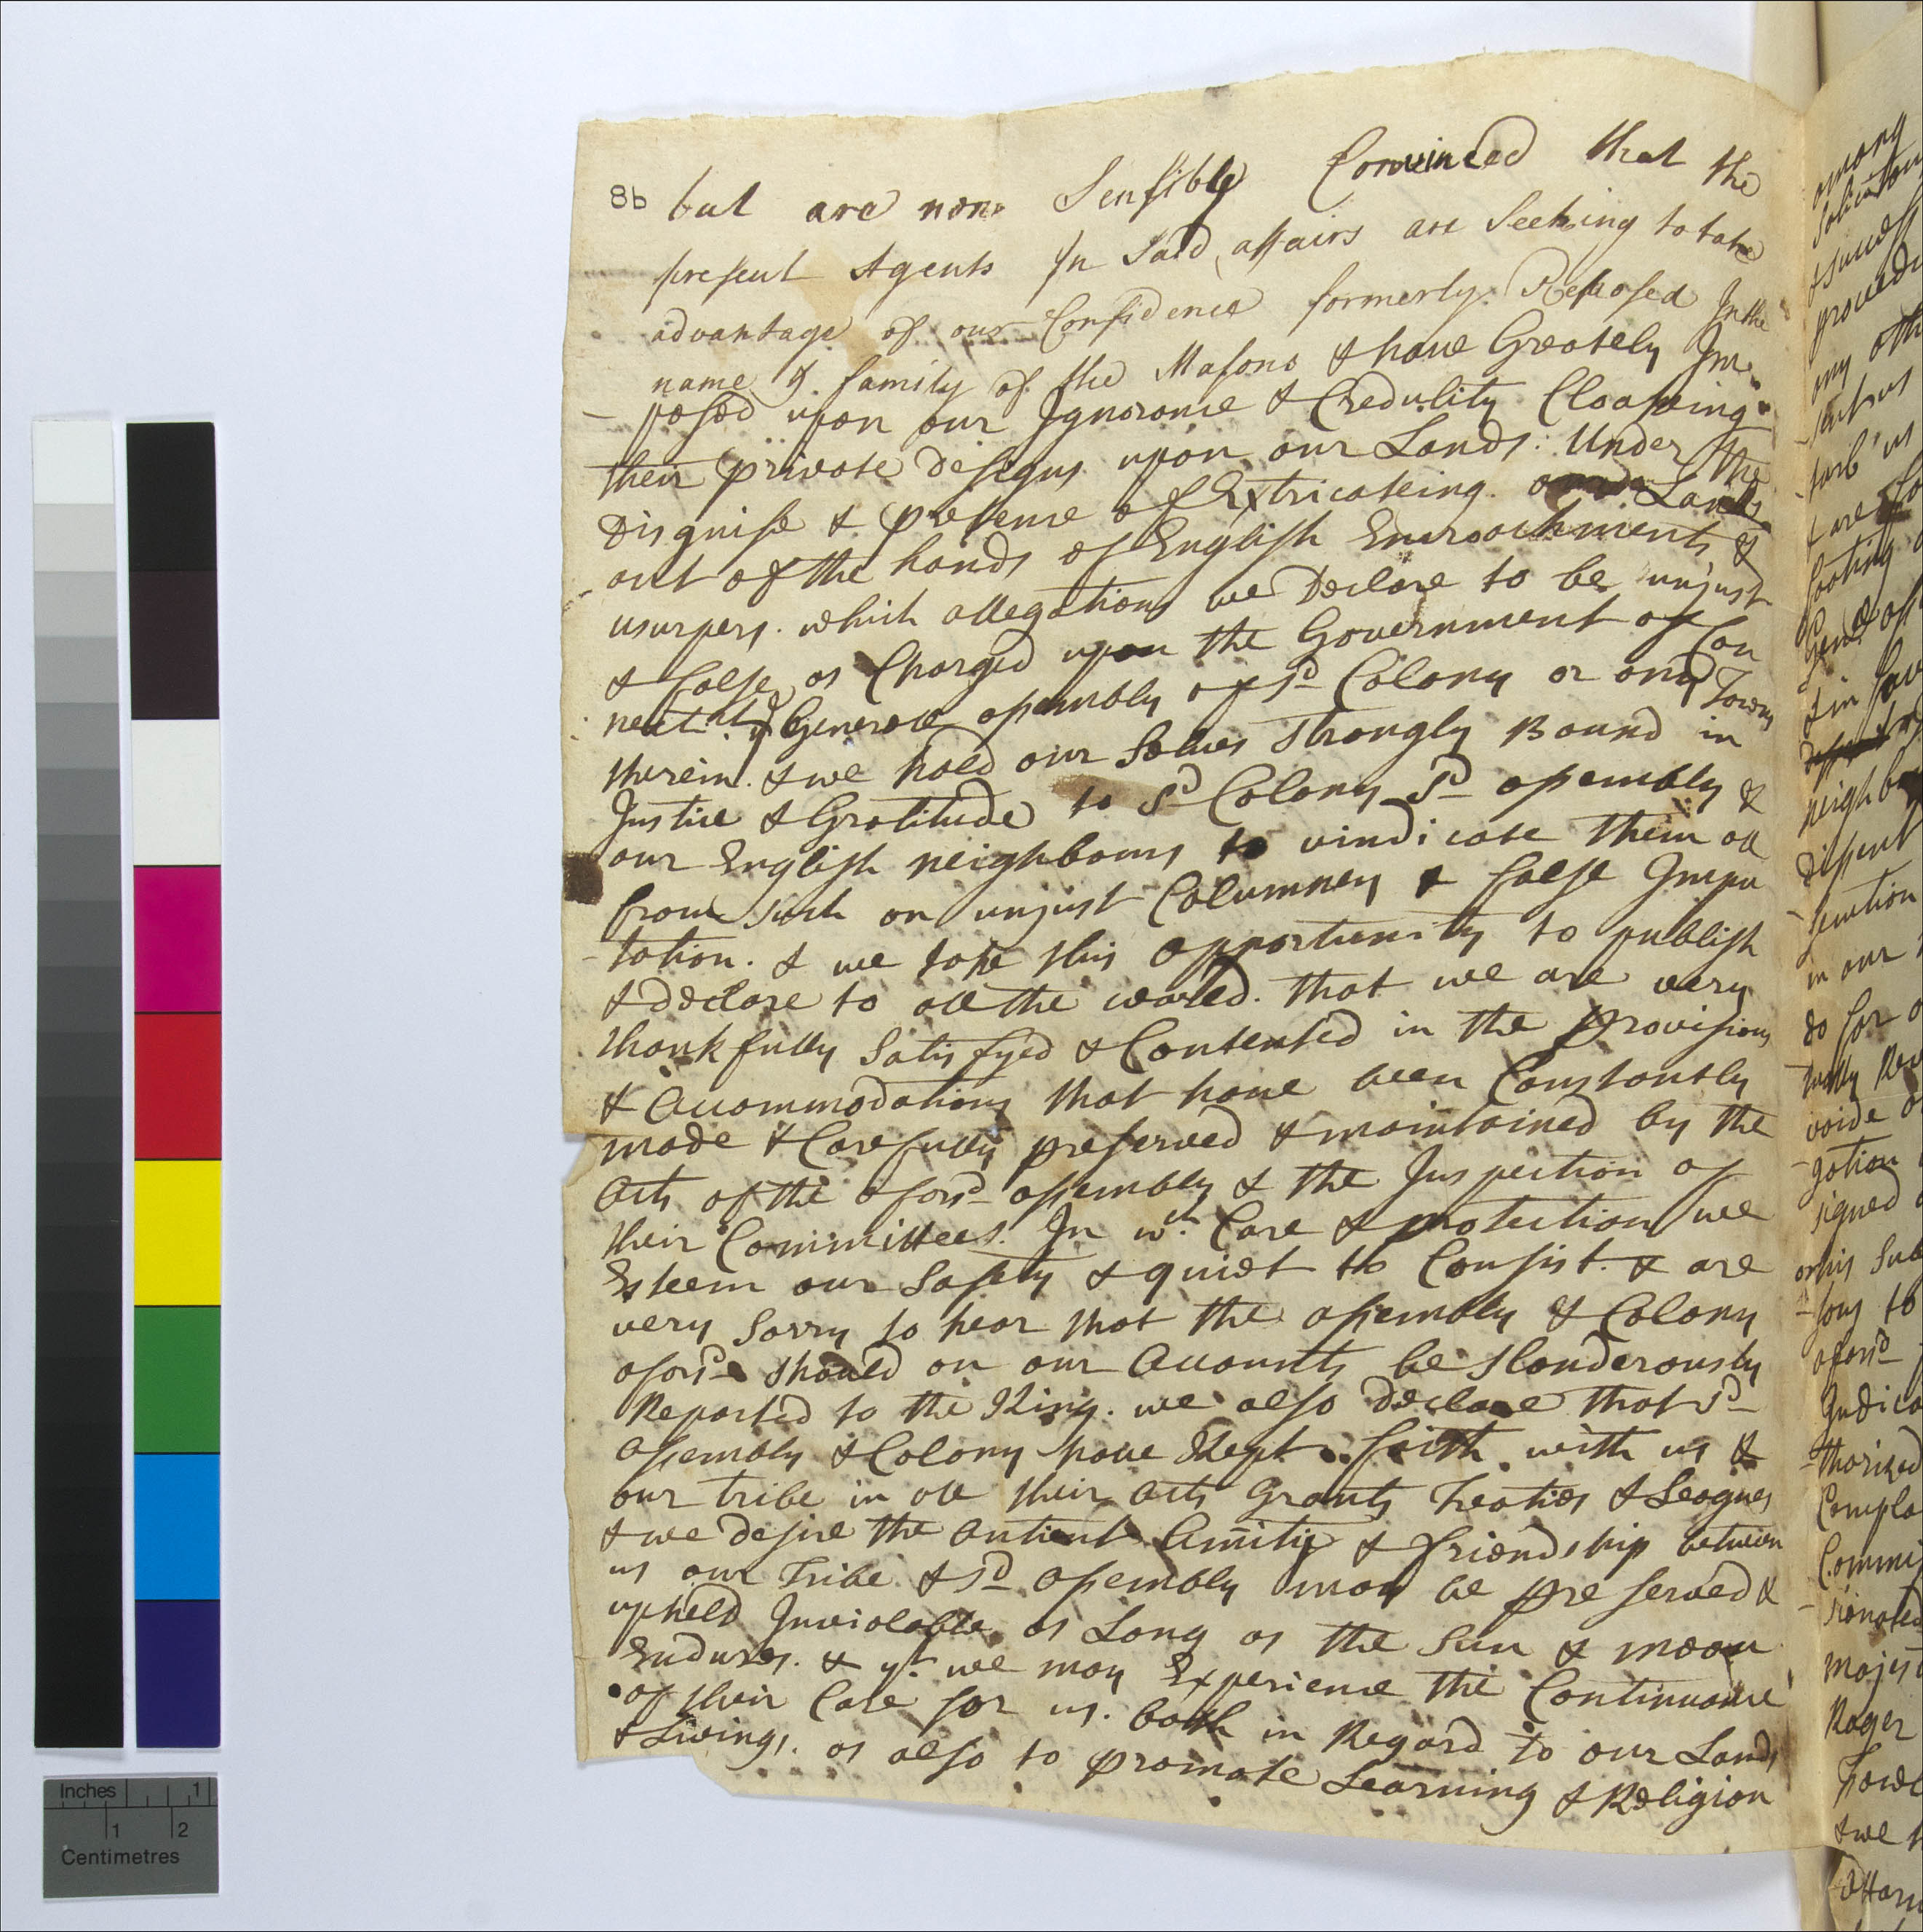 8b but are now Sensibly Convinced that the
present Agents In Said affairs are Seeking to take
advantage of our Confidence formerly Reposed In the
name & family of the Masons & have Greately Im
-posed upon our Ignorance & Credulity Cloakeing
their private designs upon our Lands: Under the
Disguise & pretense of Extricateing Lands
out of the hands of English Encroachments &
usurpers. which allegations we Declare to be unjust
& false as Charged upon the Government of Con
necticut Generall assembly of sd Colony or any Towns
therein. & we hold our Selves Strongly Bound in
Justice & Gratitude to Sd Colony Sd assembly &
our English neighbours to vindicate them all
from such an unjust Calumney & false Impu
-tation. & we take this opportunity to publish
& declare to all the world. that we are very
thankfully Satisfyed & Contented in the provisions
& Accommodations that have been Constantly
made & Carefully preserved & maintained by the
Acts of the aforsd assembly & the Inspection of
their Committees. In wch Care & protection we
Esteem our Safety & quiet to Consist. & are
very Sorry to hear that the assembly & Colony
aforsd should on our Accounts be slanderously
Reported to the King. we also declare that sd
assembly & Colony have kept faith with us &
our tribe in all their acts Grants Treaties & Leagues
& we desire the antient Amity & friendship between
us our Tribe & sd assembly may be preserved &
upheld Inviolable as Long as the Sun & moon
Endures. & yt we may Experience the Continuance
of their Care for us. both in Regard to our Lands
& Livings. as also to promote Learning & Religion
among
proceed
my oth
neighbo
dissent
in our
so for
voide
signed
or his Sub
aforsd
-thorized
Compla
Commi
majest
Roger
& we
Inches 1
1 2
Centimetres